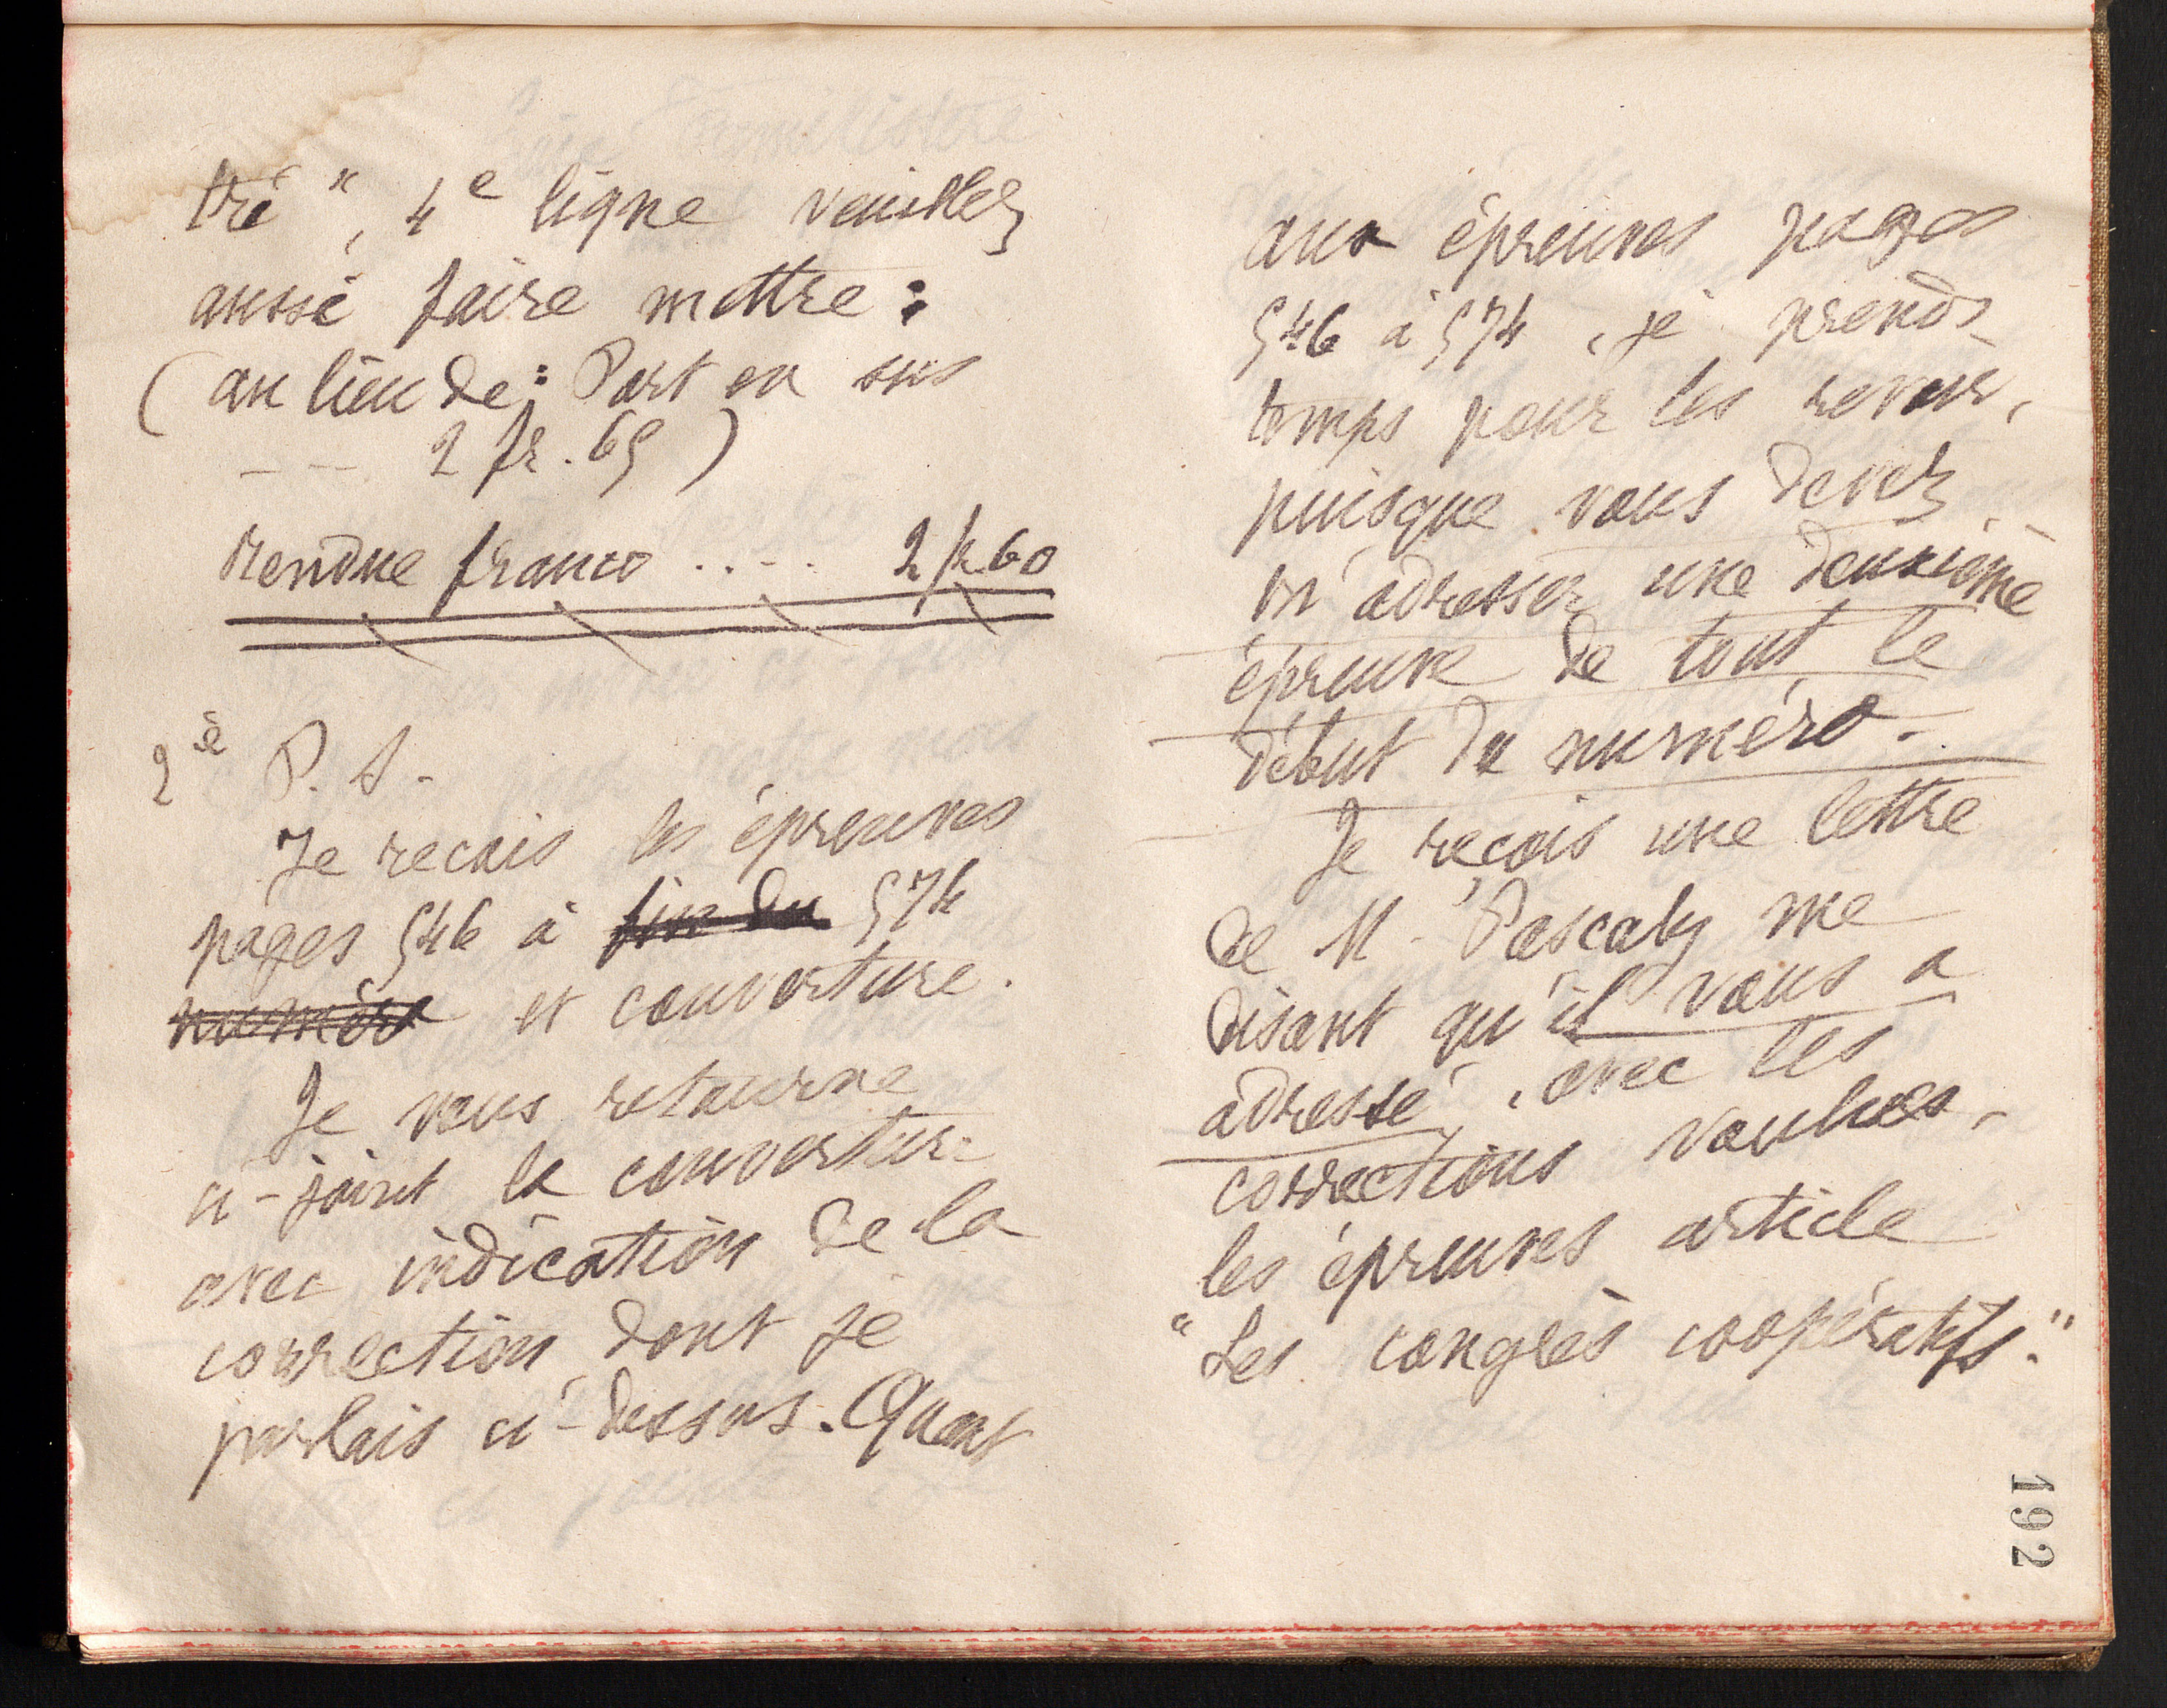 tré", 4e ligne veuillez
aussi faire mettre :
(au lieu de : Port en sus
-- 2 fr. 65)
rendue franco ..-. 2 fr 60
2e P. S.
Je recois les épreuves
pages 546 à fin du 574
numéro et couverture.
Je vous retourne
ci-joint la couverture
avec indication de la
correction dont je
parlais ci-dessus. Quant
aux épreuves pages
546 à 574, je prends
temps pour les revoir,
puisque vous devez
m'adresser une deuxième
épreuve de tout le
début du numéro.
Je reçois une lettre
de M. Pascaly me
disant qu'il vous a
adressé, avec les
corrections voulues,
les épreuves article
"Les congrès coopératifs."
192